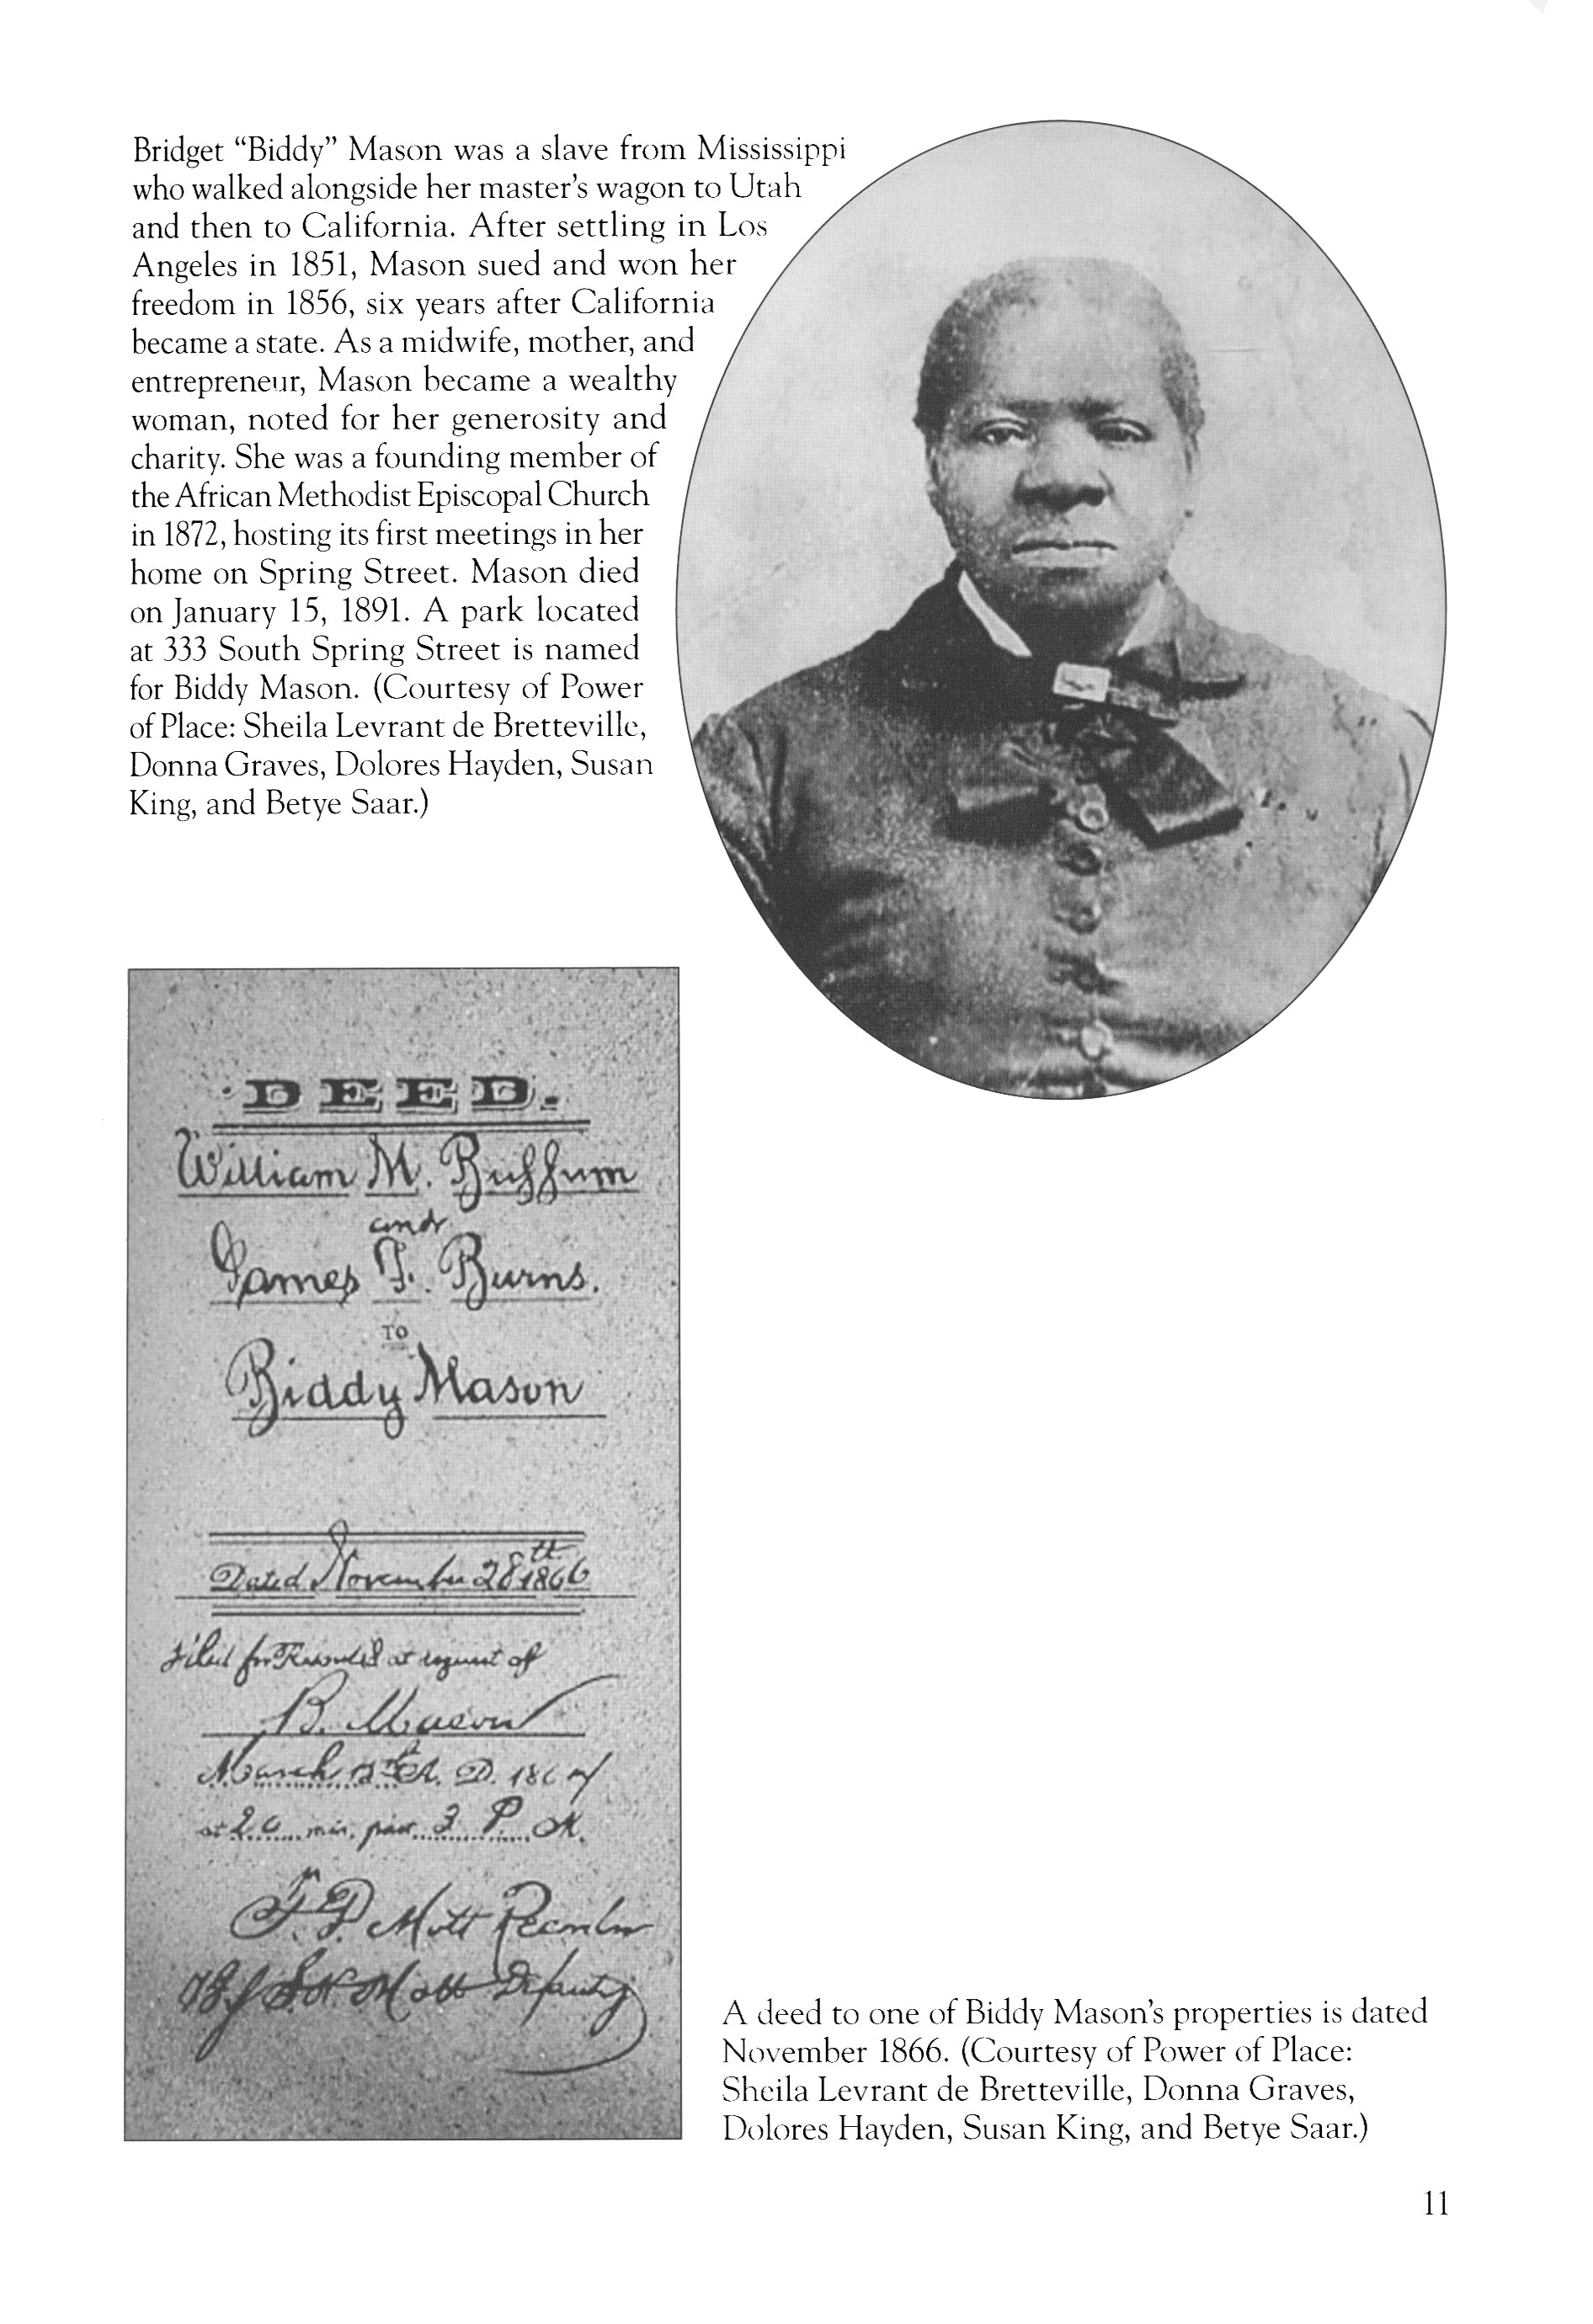 Bridget “Biddy” Mason was a slave from Mississippi
who walked alongside her master’s wagon to Utah
and then to California. After settling in Los
Angeles in 1851, Mason sued and won her
freedom in 1856, six years after California
became a state. As a midwife, mother, and
entrepreneur, Mason became a wealthy
woman, noted for her generosity and
charity. She was a founding member of
the African Methodist Episcopal Church
in 1872, hosting its first meetings in her
home on Spring Street. Mason died
on January 15, 1891. A park located
at 333 South Spring Street is named
for Biddy Mason. (Courtesy of Power
of Place: Sheila Levrant de Bretteville,
Donna Graves, Dolores Hayden, Susan
King, and Betye Saar.)
DEED.
William M. Buffum
and
James F. Burns.
TO
Biddy Mason
Dated November 28th 1866
Filed for Record at request of
B. Mason
March A. D. 186
at 20 min. past 3 P. M.
Mott Recorder
By Mott Deputy
A deed to one of Biddy Mason’s properties is dated
November 1866. (Courtesy of Power of Place:
Sheila Levrant de Bretteville, Donna Graves,
Dolores Hayden, Susan King, and Betye Saar.)
11